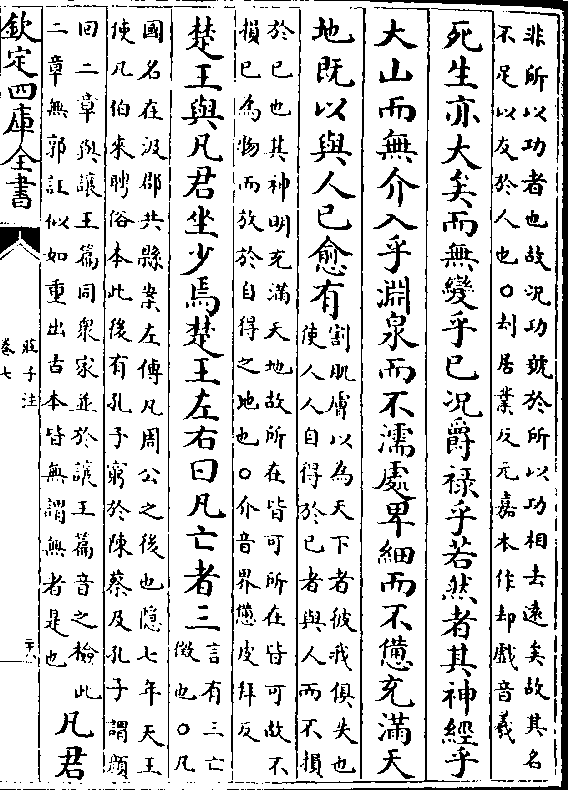 非所以功者也故况功號於所以功相去遠矣故其名
不足以友於人也○刦居業反元嘉本作却戲音羲
死生亦大矣而無變乎已况爵禄乎若然者其神經乎
大山而無介入乎淵泉而不濡處卑細而不憊充滿天
地既以與人已愈有
割肌膚以為天下者彼我俱失也
使人人自得於已者與人而不損
於已也其神明充滿天地故所在皆可所在皆可故不
損已為物而放於自得之地也○介音界憊皮拜反
楚王與凡君坐少焉楚王左右曰凡亡者三
言有三亡
徴也○凡
國名在汲郡共縣案左傳凡周公之後也隱七年天王
使凡伯來聘俗本此後有孔子窮於陳蔡及孔子謂顔
回二章與讓王篇同衆家並於讓王篇音之檢此
二章無郭註似如重出古本皆無謂無者是也
凡君
欽定四庫全書
莊子注
卷七